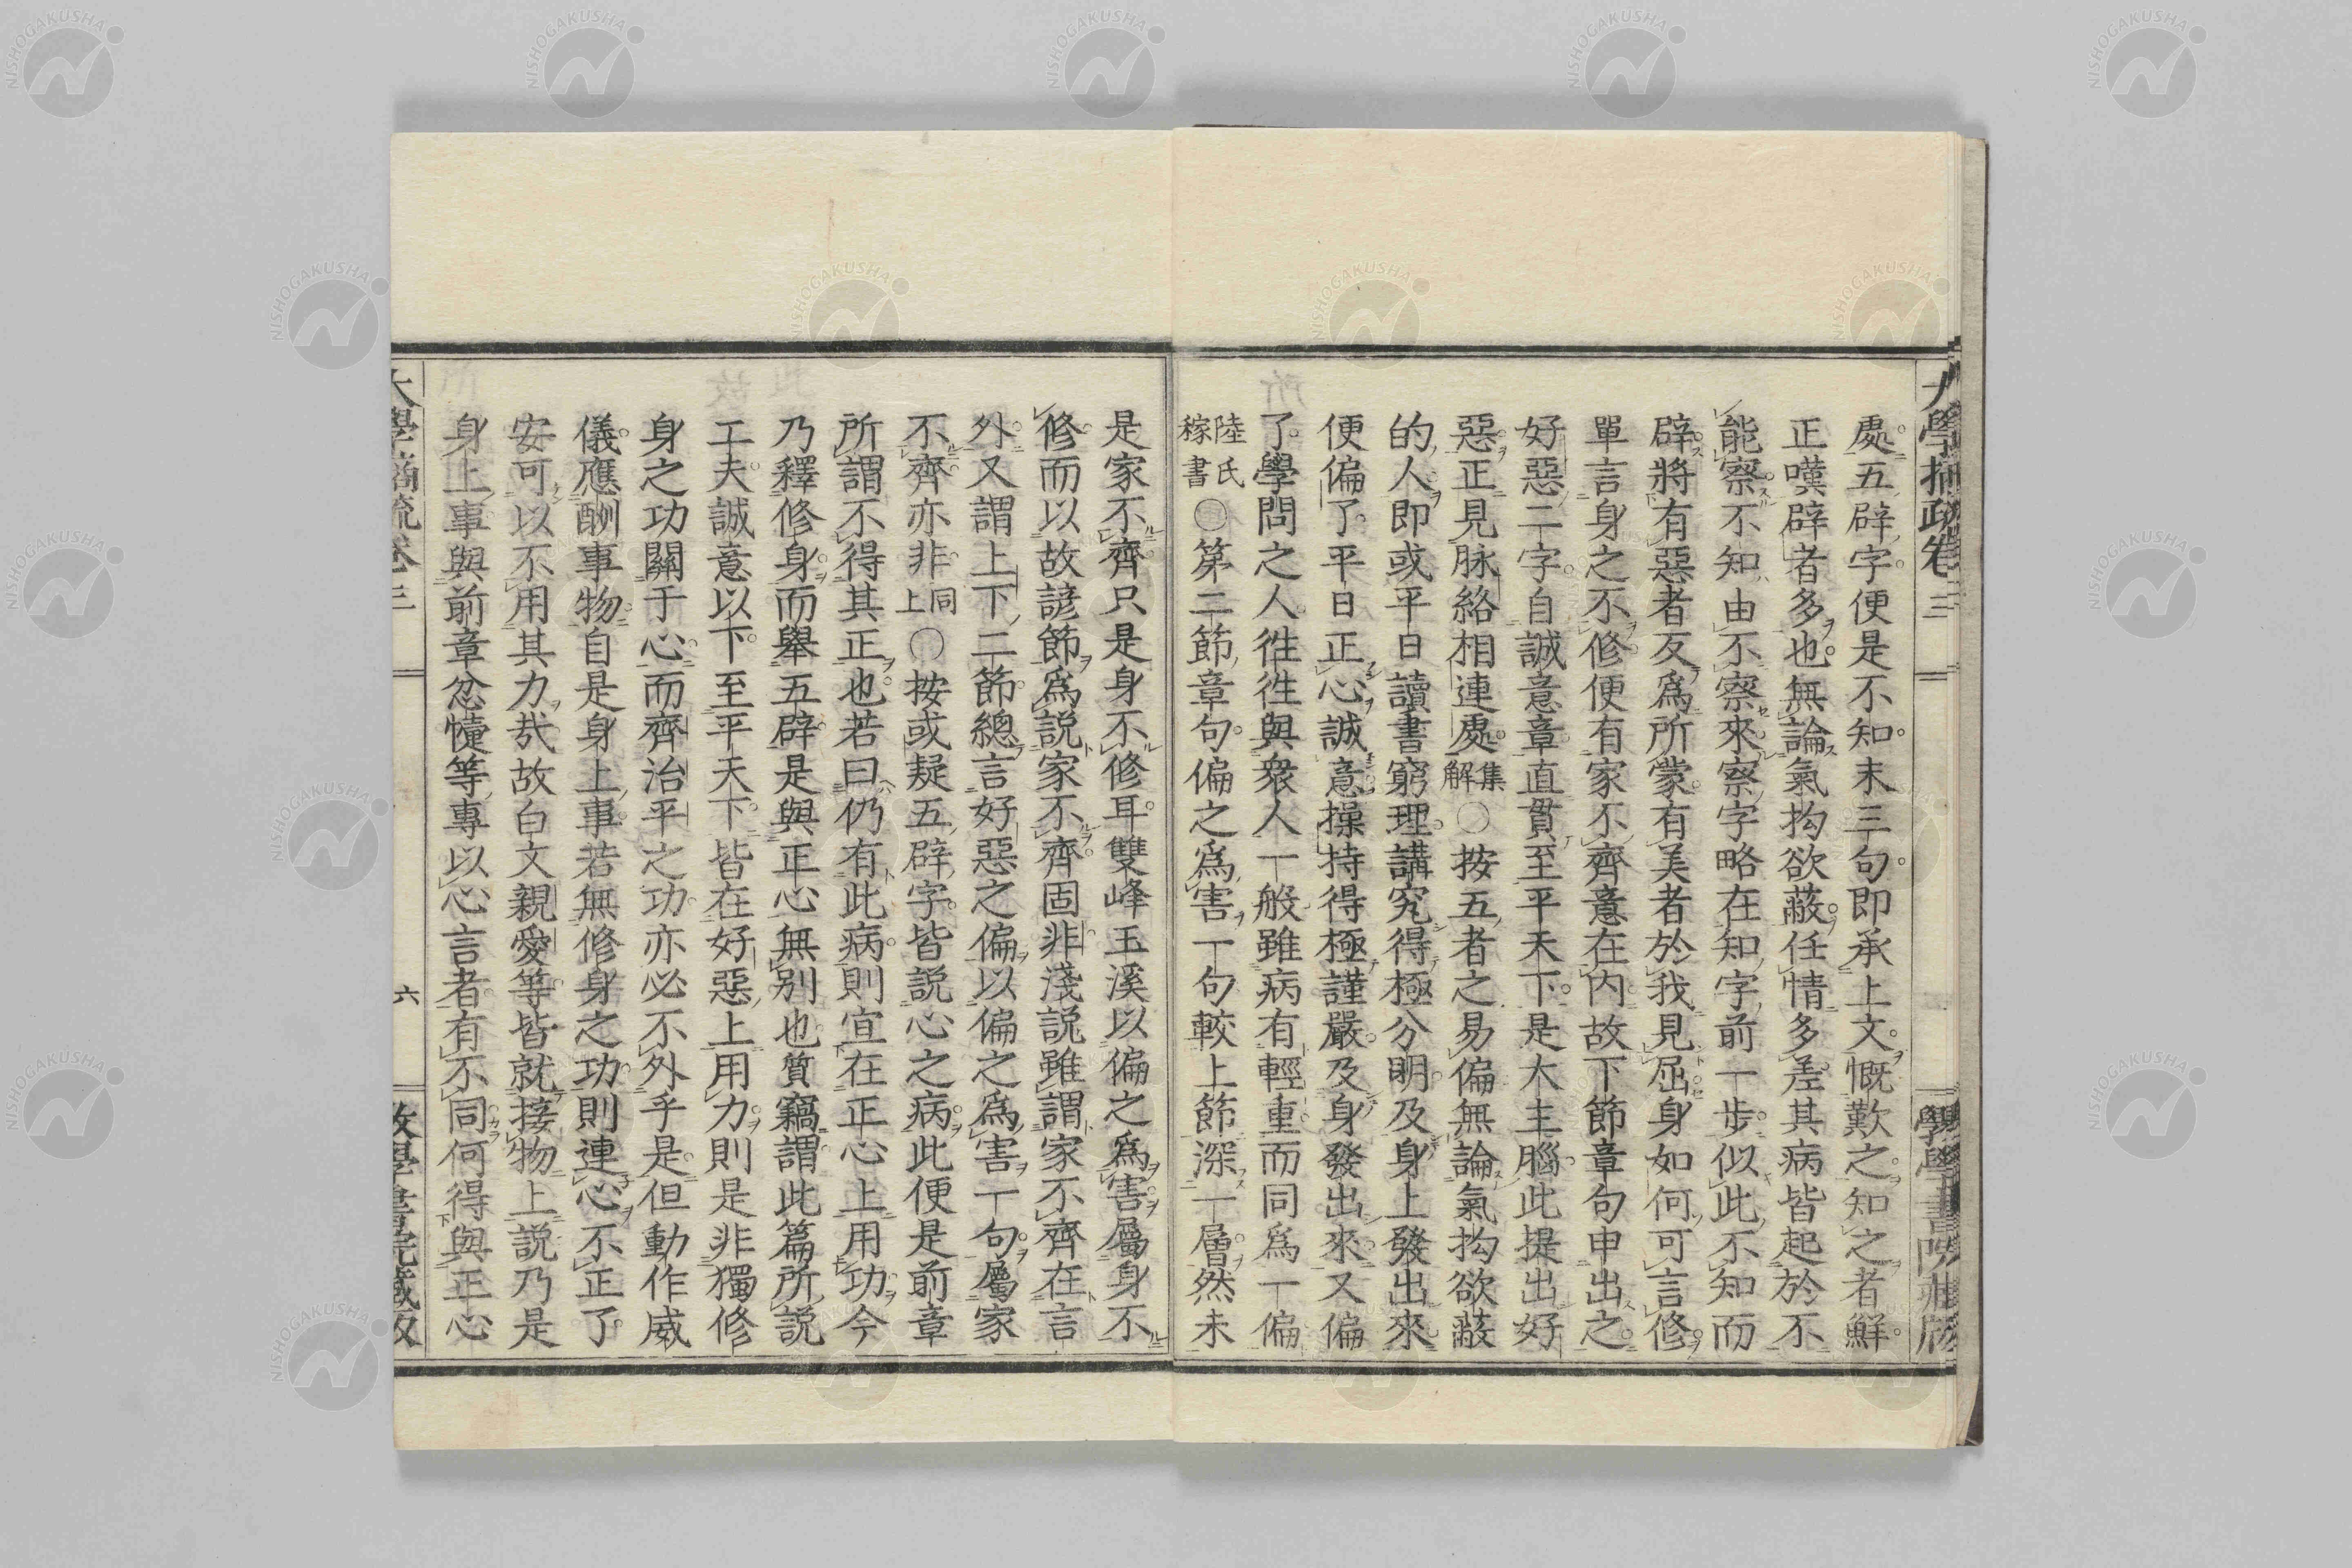 大學摘疏卷三
處五辟字便是不知末三句即承上文慨歎之知之者鮮
正嘆辟者多也無論氣拘欲蔽任情多差其病皆起於不
能察不知由不察來察字略在知字前一步似此不知而
辟將有惡者反爲所蒙有美者於我見屈身如何可言修
單言身之不修便有家不齊意在内故下節章句申出之
好惡二字自誠意章直貫至平天下是大主腦此提出好
惡正見脉絡相連處集解〇按五者之易偏無論氣拘欲蔽
的人即或平日讀書窮理講究得極分明及身上發出來
便偏了平日正心誠意操持得極謹嚴及身發出來又偏
了學問之人徃徃與衆人一般雖病有輕重而同爲一偏
陸氏稼書〇第二節章句偏之爲害一句較上節深一層然未
是家不齊只是身不修耳雙峰玉溪以偏之爲害屬身不
修而以故諺節爲説家不齊固非淺説雖謂家不齊在言
外又謂上下二節總言好惡之偏以偏之爲害一句屬家
不齊亦非同上〇按或疑五辟字皆説心之病此便是前章
所謂不得其正也若曰仍有此病則宜在正心上用功今
乃釋修身而舉五辟是與正心無别也質竊謂此篇所説
工夫誠意以下至平天下皆在好惡上用力則是非獨修
身之功關于心而齊治平之功亦必不外乎是但動作威
儀應酬事物自是身上事若無修身之功則連心不正了
安可以不用其力哉故白文親愛等皆就接物上説乃是
身上事與前章忿懥等專以心言者有不同何得與正心
大學摘疏卷三
六